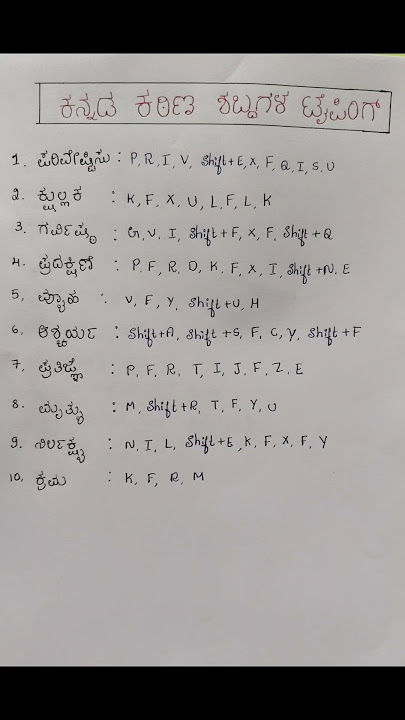 ಕನ್ನಡ ಕಠಿಣ ಶಬ್ದಗಳ ಟೈಪಿಂಗ್
1. ಪರಿವೇಷ್ಟಿಸು : P, R, I, V, Shift+E, X, F, Q, I, S, U
2. ಕ್ಷುಲ್ಲಕ : K, F, X, U, L, F, L, K
3. ಗರ್ವಿಷ್ಠ : G, V, I, Shift+F, X, F, Shift+Q
4. ಪ್ರದಕ್ಷಿಣೆ : P, F, R, D, K, F, X, I, Shift+N, E
5, ವ್ಯೂಹ : V, F, Y, Shift+U, H
6. ಆಶ್ಚರ್ಯ : Shift+A, Shift+S, F, C, Y, Shift+F
7. ಪ್ರತಿಜ್ಞೆ : P, F, R, T, I, J, F, Z, E
8. ಮೃತ್ಯು : M, Shift+R, T, F, Y, U
9. ನಿರ್ಲಕ್ಷ್ಯ : N, I, L, Shift+E, K, F, X, F, Y
10. ಕ್ರಮ : K, F, R, M